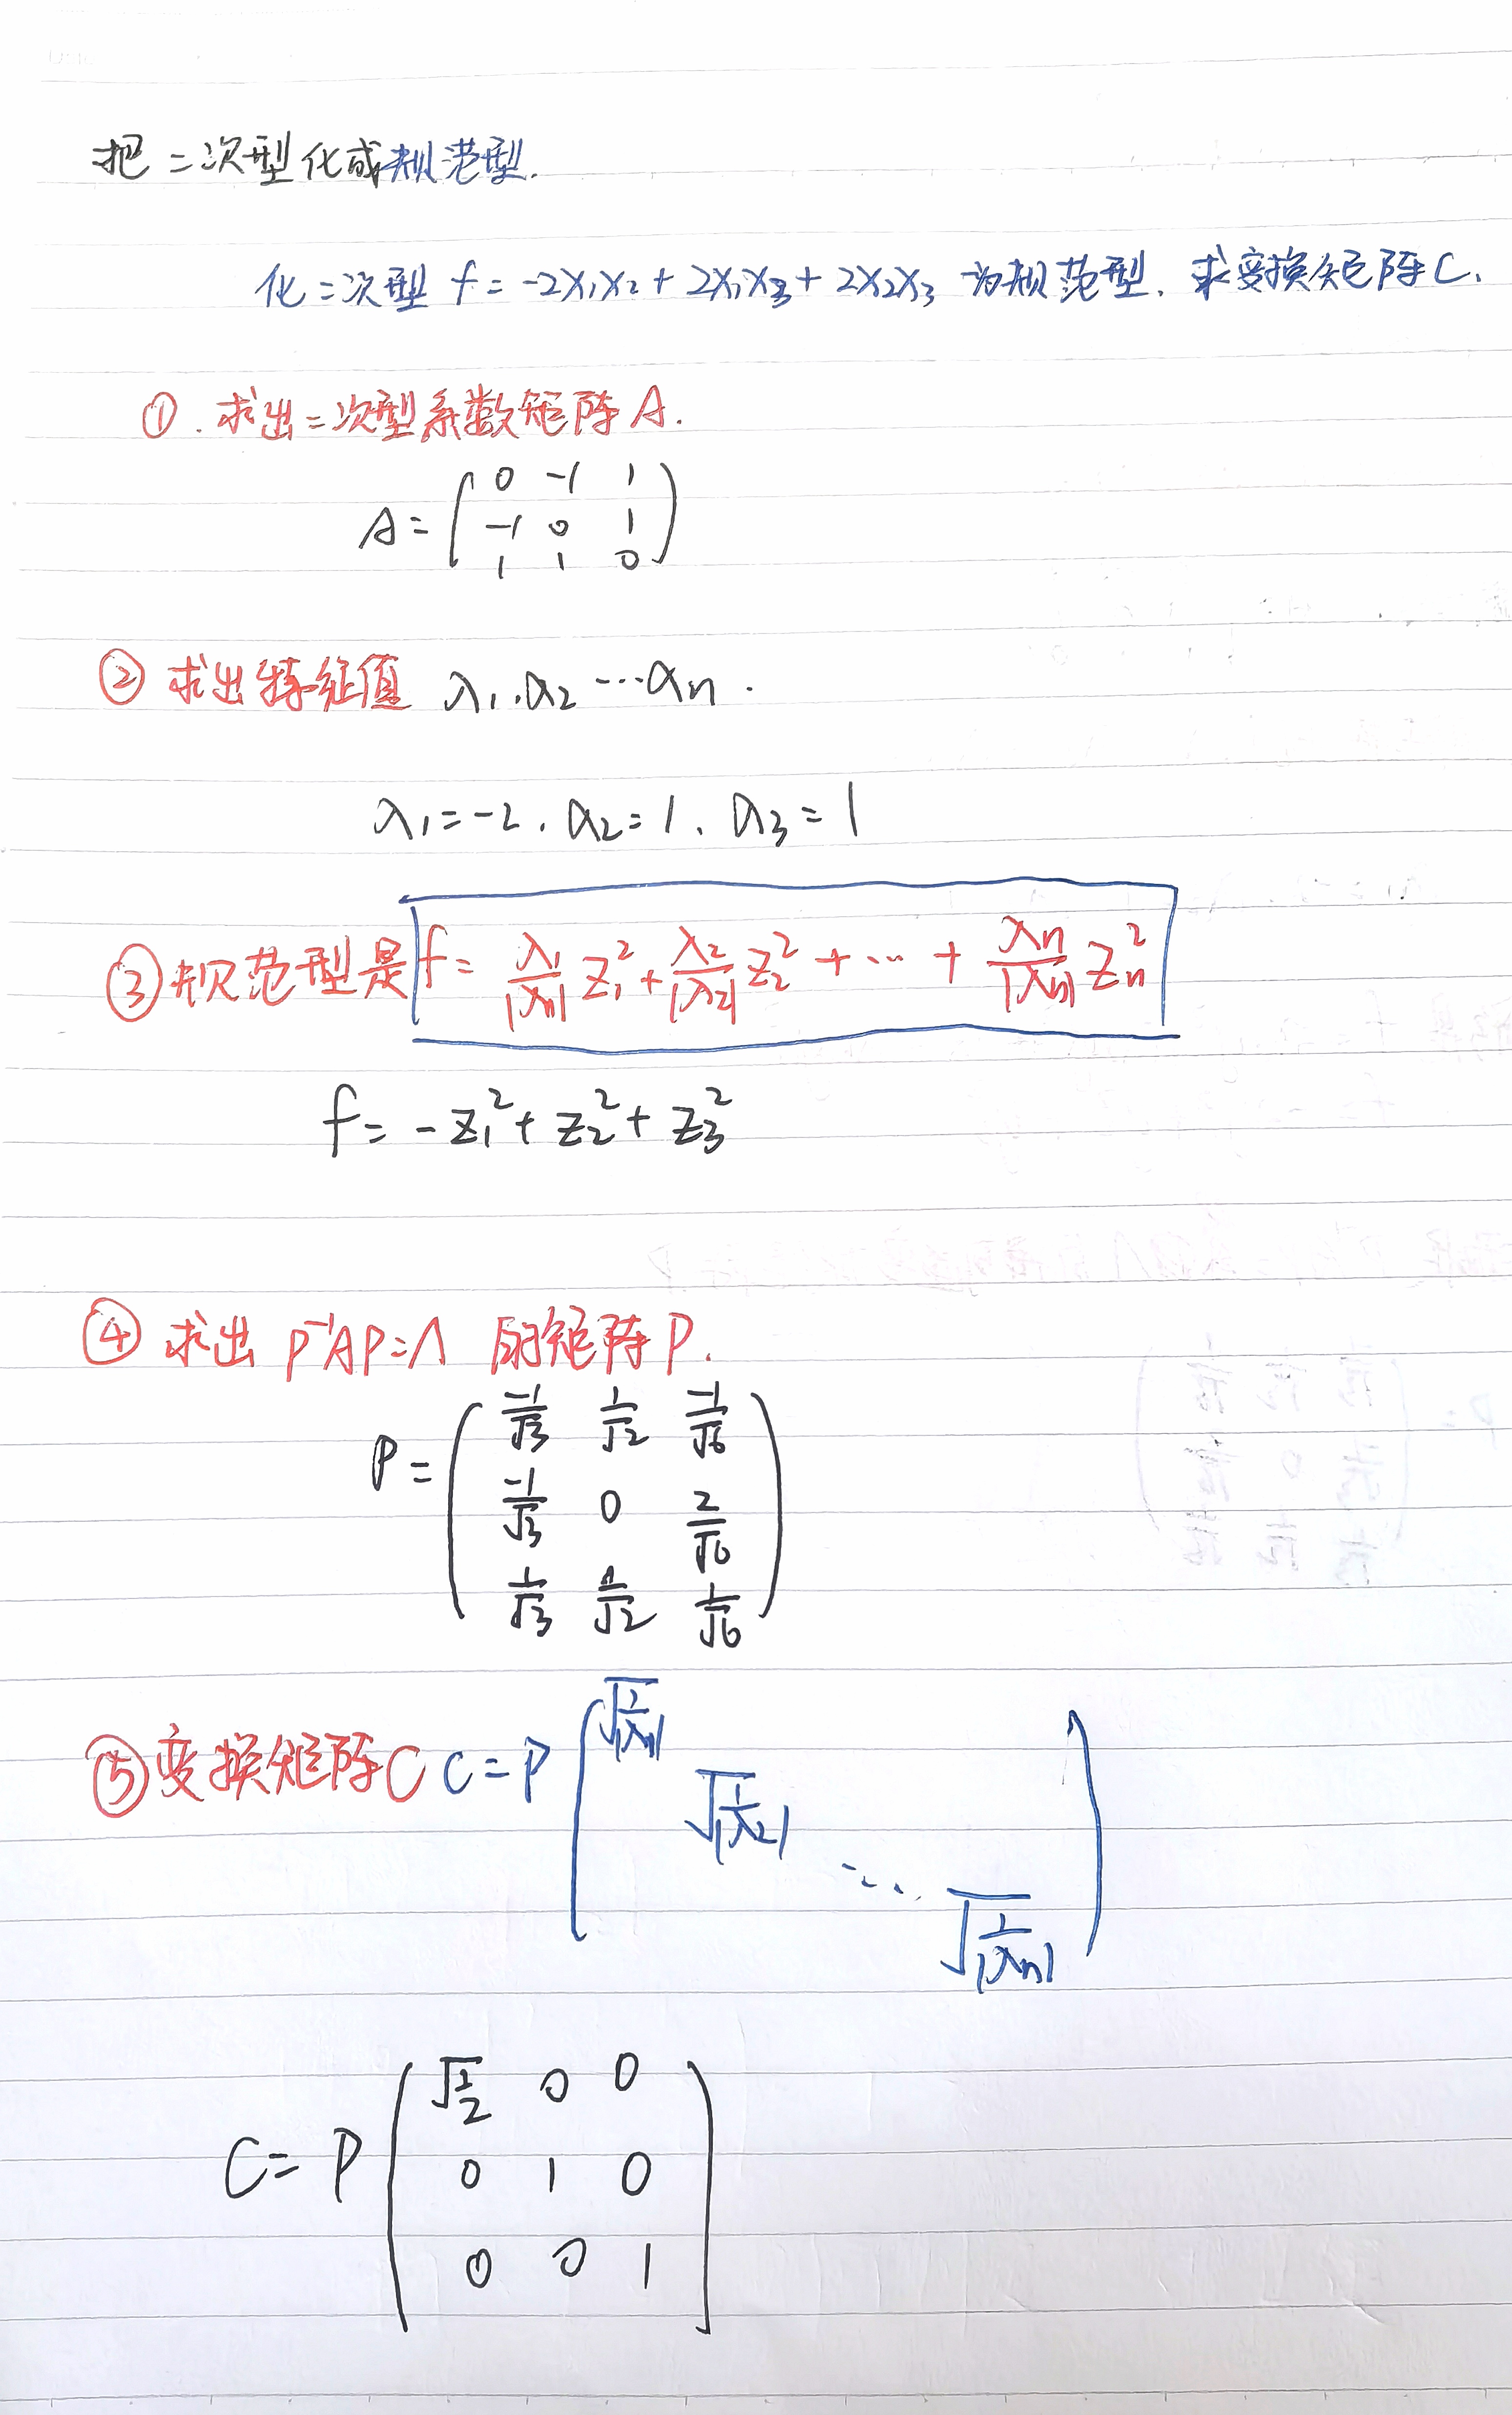 把二次型化成规范型.
化二次型 f = -2x₁x₂ + 2x₁x₃ + 2x₂x₃ 为规范型. 求变换矩阵C.
① . 求出二次型系数矩阵A.
0 -1 1
A = -1 0 1
1 1 0
② 求出特征值 λ₁. λ₂ … λn .
λ₁ = -2 . λ₂ = 1 . λ₃ = 1
③ 规范型是 f = λ₁/|λn| z₁² + λ₂/|λ₂| z₂² + … + λn/|λn| zn²
f = -z₁² + z₂² + z₃²
④ 求出 P⁻¹AP = Λ 的矩阵P.
-1/√3 1/√2 -1/√6
P = -1/√3 0 2/√6
1/√3 1/√2 1/√6
⑤ 变换矩阵C C = P √(1/|λ₁|)
√(1/|λ₂|)
…
√(1/|λn|)
√(1/2) 0 0
C = P 0 1 0
0 0 1